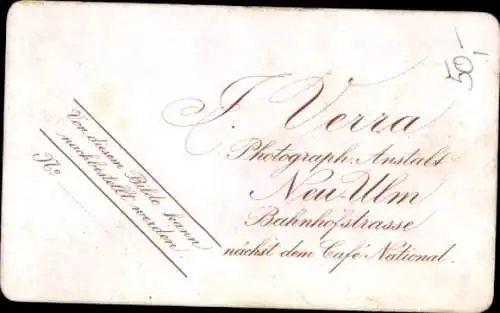 J. Verra
Photograph. Anstalt
Neu-Ulm
Bahnhofstrasse
nächst dem Café National.
Von diesem Bilde kann
nachbestellt werden.
No
50,-